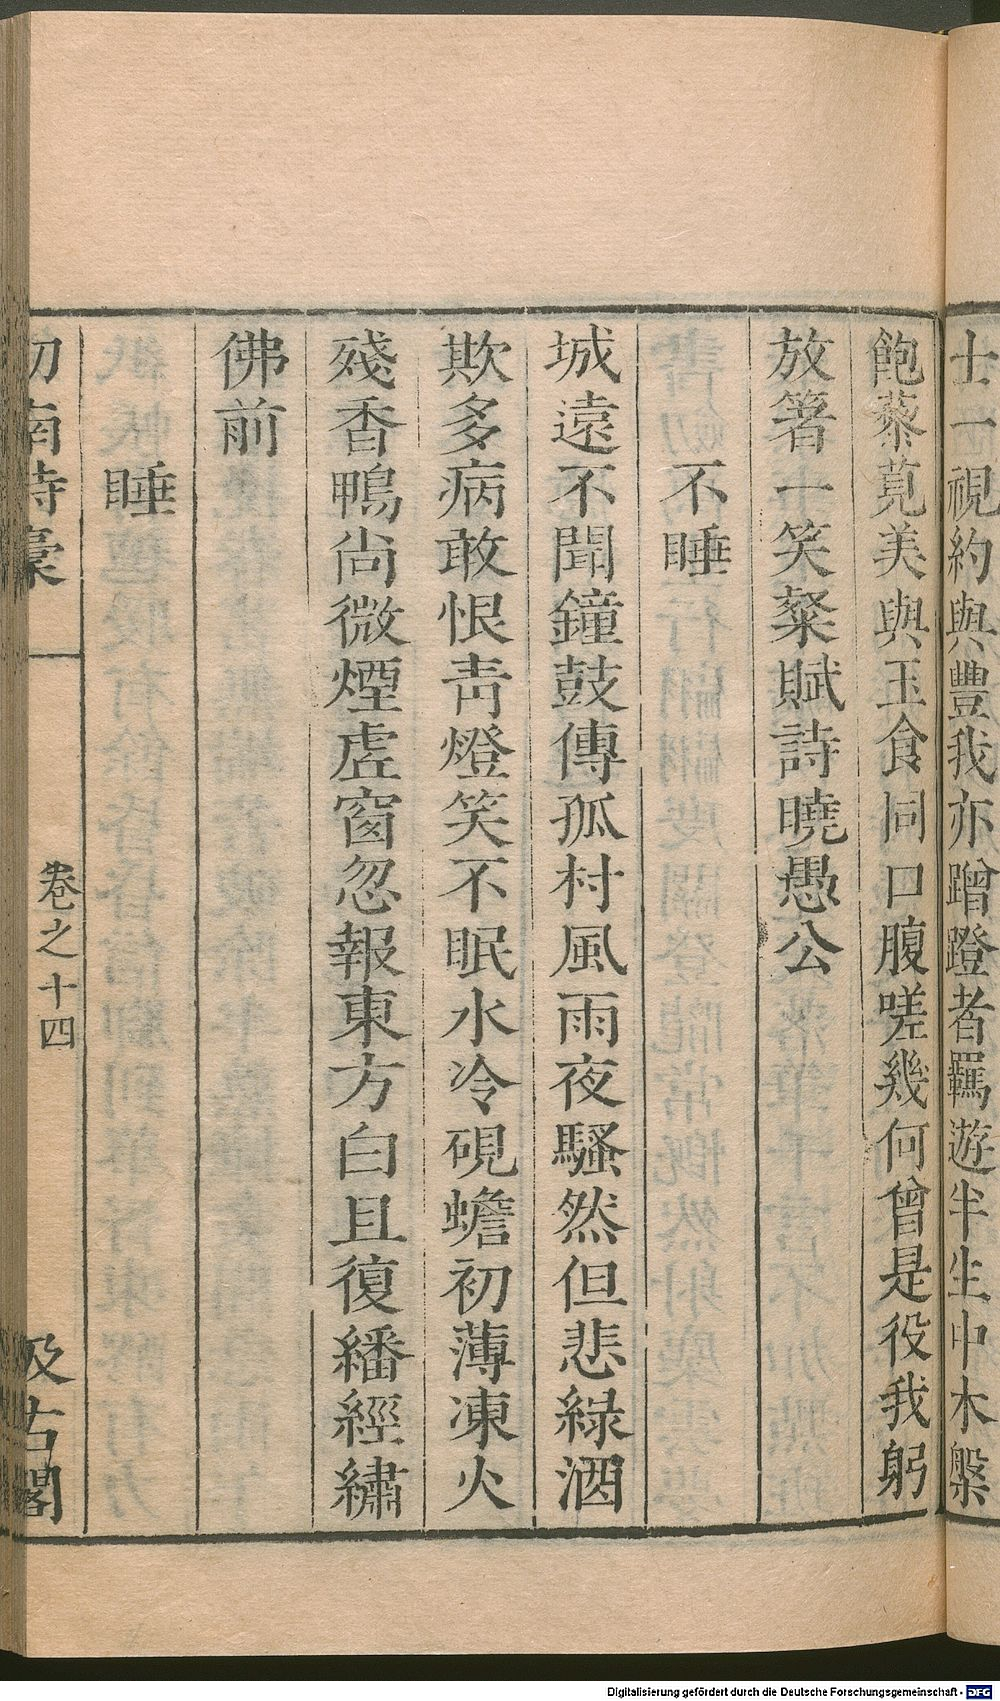 士一視約與豐我亦蹭蹬者羈遊半生中木槃
飽藜莧美與玉食同口腹嗟幾何曾是役我躬
放箸一笑粲賦詩曉愚公
不睡
城遠不聞鐘鼓傳孤村風雨夜騷然但悲綠酒
欺多病敢恨靑燈笑不眠水冷硯蟾初薄凍火
殘香鴨尙微煙虛窗忽報東方白且復繙經繡
佛前
睡
劒南詩稾
卷之十四
汲古閣
Digitalisierung gefördert durch die Deutsche Forschungsgemeinschaft - DFG